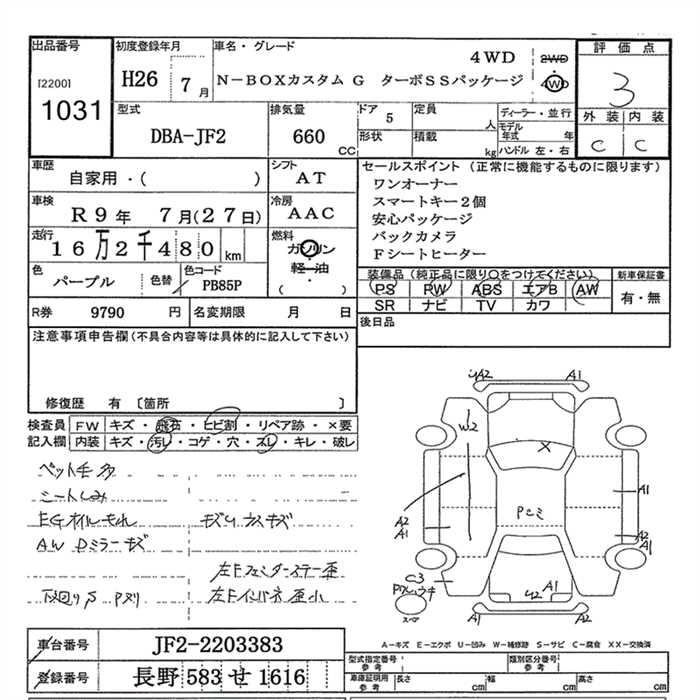 出品番号
[2200]
1031
初度登録年月
H26 7月
車名・グレード
4WD
N-BOXカスタム G ターボSSパッケージ
2WD
4WD
評価点
3
外装 内装
C C
型式
DBA-JF2
排気量
660
CC
ドア
5
形状
定員
人
積載
kg
ディーラー・並行
モデル年式 年
ハンドル 左・右
車歴
自家用・( )
シフト
AT
車検
R9年 7月(27日)
冷房
AAC
走行
16万2千480km
燃料
ガソリン
軽油
( )
色
パープル
色替
色コード
PB85P
R券 9790 円
名変期限 月 日
セールスポイント(正常に機能するものに限ります)
ワンオーナー
スマートキー2個
安心パッケージ
バックカメラ
Fシートヒーター
装備品(純正品に限り○をつけてください)
PS PW ABS エアB AW
SR ナビ TV カワ
新車保証書
有・無
後日品
注意事項申告欄(不具合内容等は具体的に記入して下さい)
修復歴 有 [箇所 ]
検査員記入欄
FW キズ・飛石・ヒビ割・リペア跡・×要
内装 キズ・汚レ・コゲ・穴・スレ・キレ・破レ
ペット毛多
シートしみ
EGオイルもれ キズUウスキズ
AW Dミラーキズ
左Fフェンダーステー歪
下回りS Pヌリ 左Fインパネ歪小
A2 A1
W2
X
A1
A2
A1
Pヘミ
A2
A1
C3
U2 A1
スペア
A2 A1
A-キズ E-エクボ U-凹み W-補修跡 S-サビ C-腐食 XX-交換済
車台番号 JF2-2203383
登録番号 長野 583 せ 1616
型式指定番号
参考
類別区分番号
参考
車庫証明用
参考
長さ cm
幅 cm
高さ cm